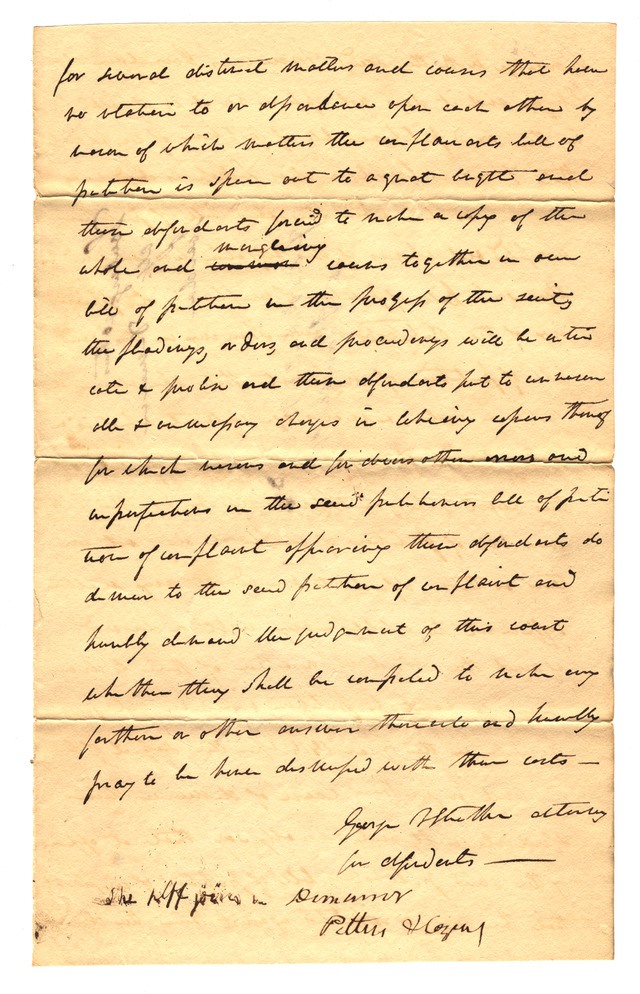 for several distinct matters and causes that have
no relation to or dependance upon each other by
reason of which matters the complainants bill of
petition is spun out to a great length and
these defendants forced to make a copy of the
whole and mingleing causes together in one
bill of petition in the progress of the suit,
the pleadings, orders, and proceedings will be intri
cate & prolix and these defendants put to unreason
able & unnecessary charges in takeing copies thereof
for which reasons and for divers other errors and
imperfections in the said petitioners bill of peti
tion of complaint appearing these defendants do
demur to the said petition of complaint and
humbly demand the judgement of this court
whether they shall be compeled to make any
further or other answer thereto and humbly
pray to be hence dismissed with their costs —
George Strother attorney
for defendants —
The plff joins in Demurrer
Pettus & Cozens